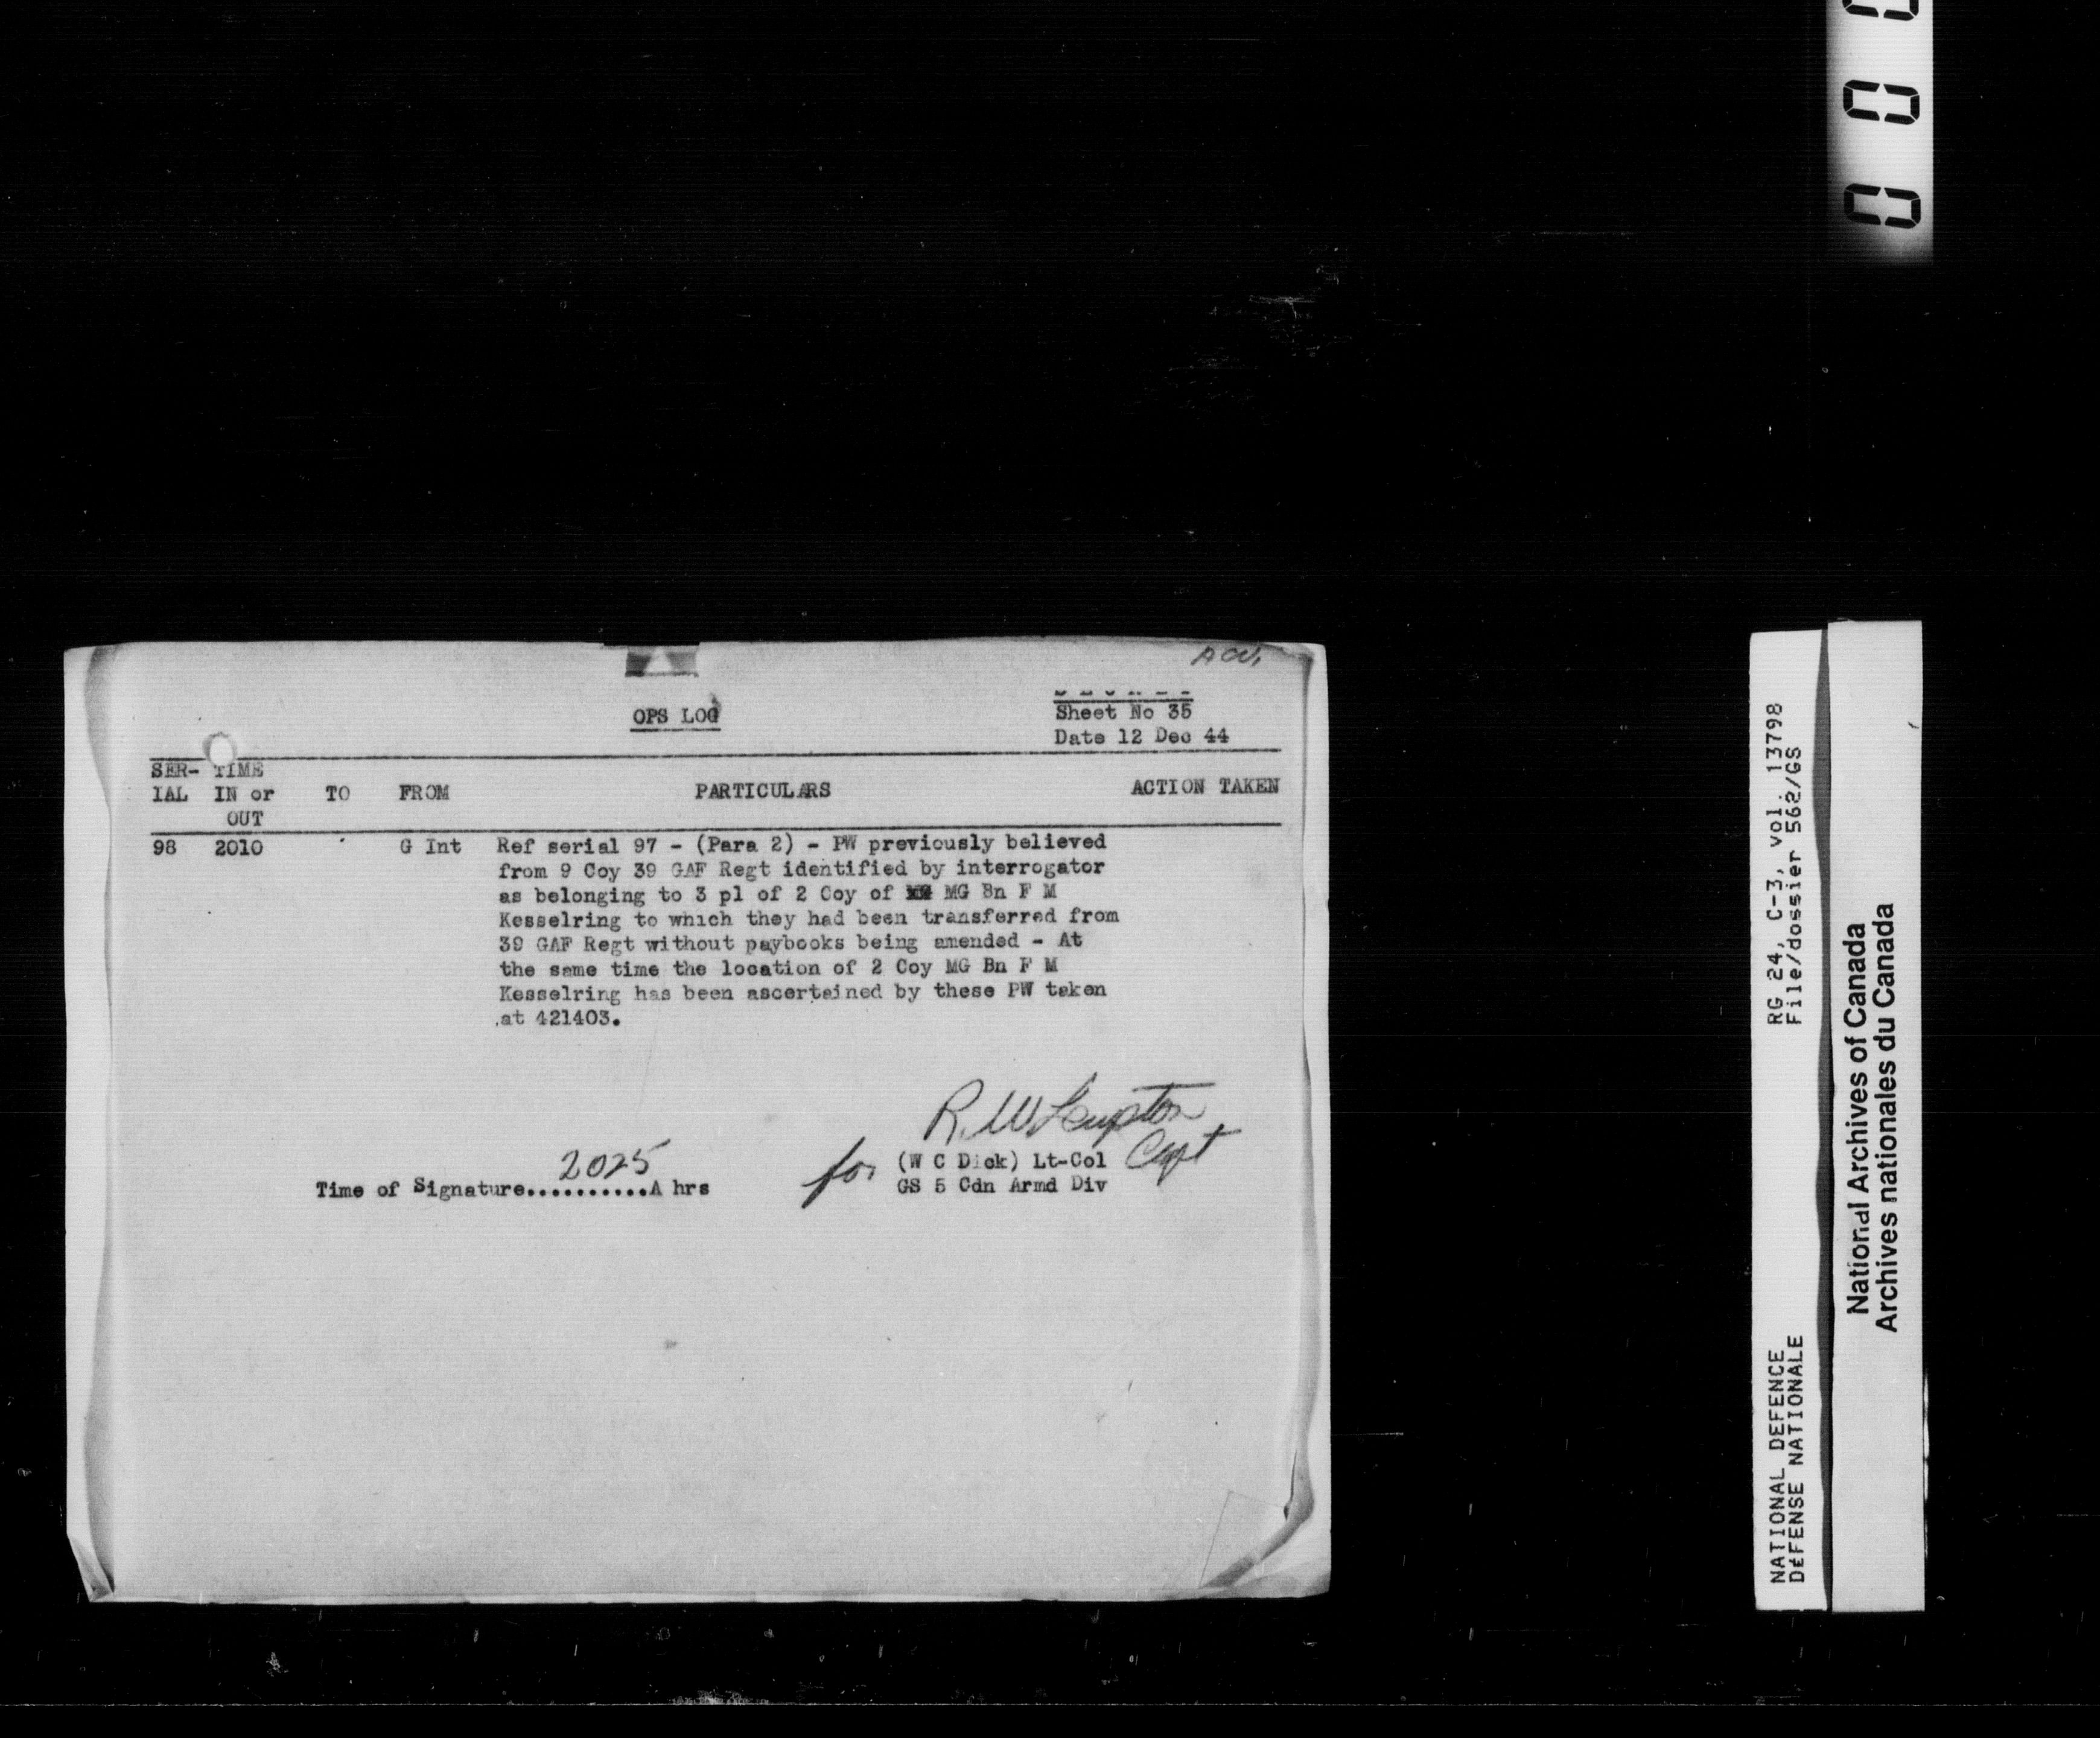 OPS LOG
SECRET
Sheet No 35
Date 12 Dec 44
SER- TIME
IAL IN or TO FROM PARTICULARS ACTION TAKEN
OUT
98 2010 G Int Ref serial 97 - (Para 2) - PW previously believed
from 9 Coy 39 GAF Regt identified by interrogator
as belonging to 3 pl of 2 Coy of MG Bn F M
Kesselring to which they had been transferred from
39 GAF Regt without paybooks being amended - At
the same time the location of 2 Coy MG Bn F M
Kesselring has been ascertained by these PW taken
at 421403.
R. W.
Capt
Time of Signature..........A hrs
2025
for (W C Dick) Lt-Col
GS 5 Cdn Armd Div
000
RG 24, C-3, vol. 13798
File/dossier 562/GS
NATIONAL DEFENCE
DÉFENSE NATIONALE
National Archives of Canada
Archives nationales du Canada